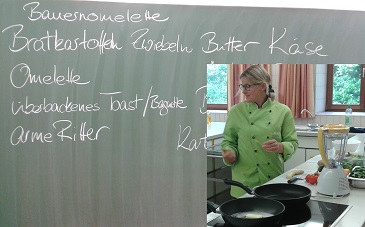 Bauernomelette
Bratkartoffeln Zwiebeln Butter Käse
Omelette
überbackenes Toast/Baguette
arme Ritter